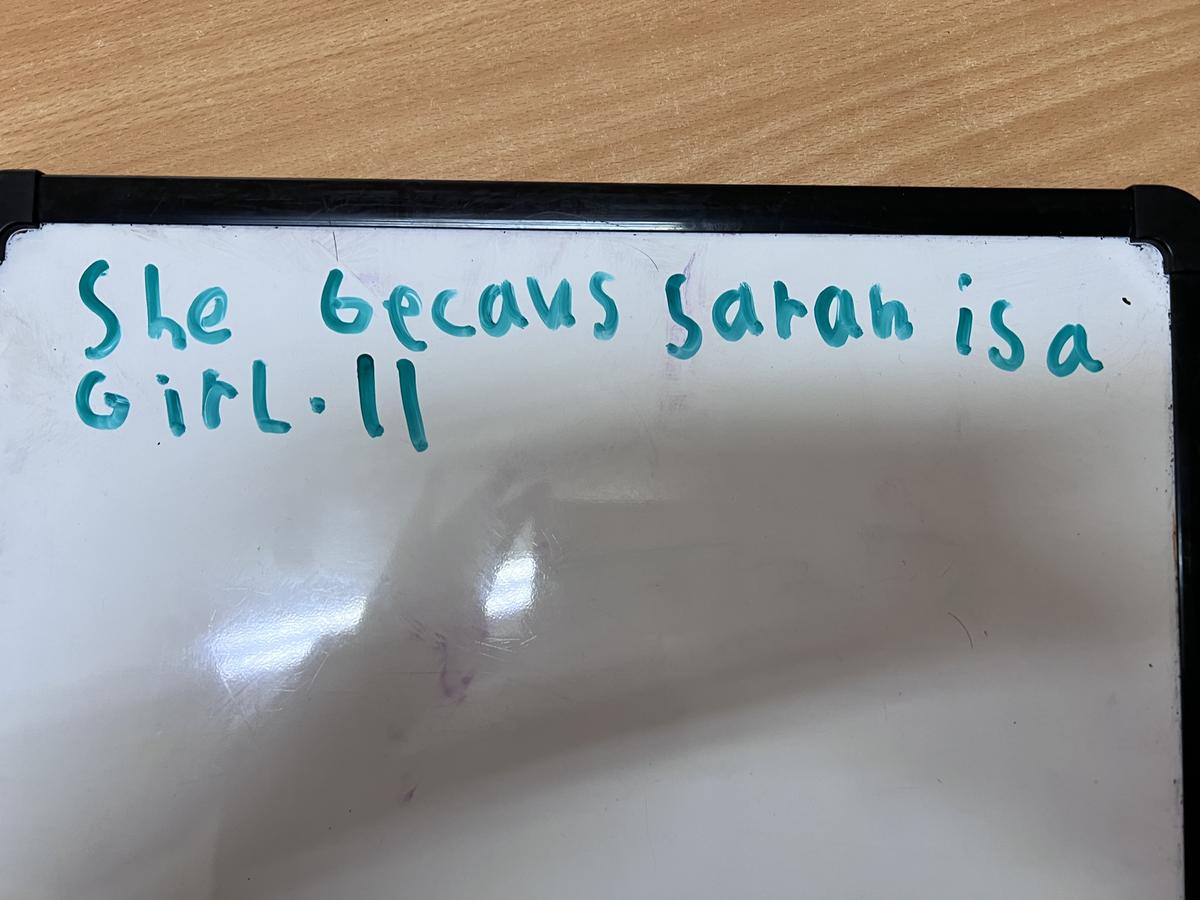 She becaus Sarah is a
GirL.ll